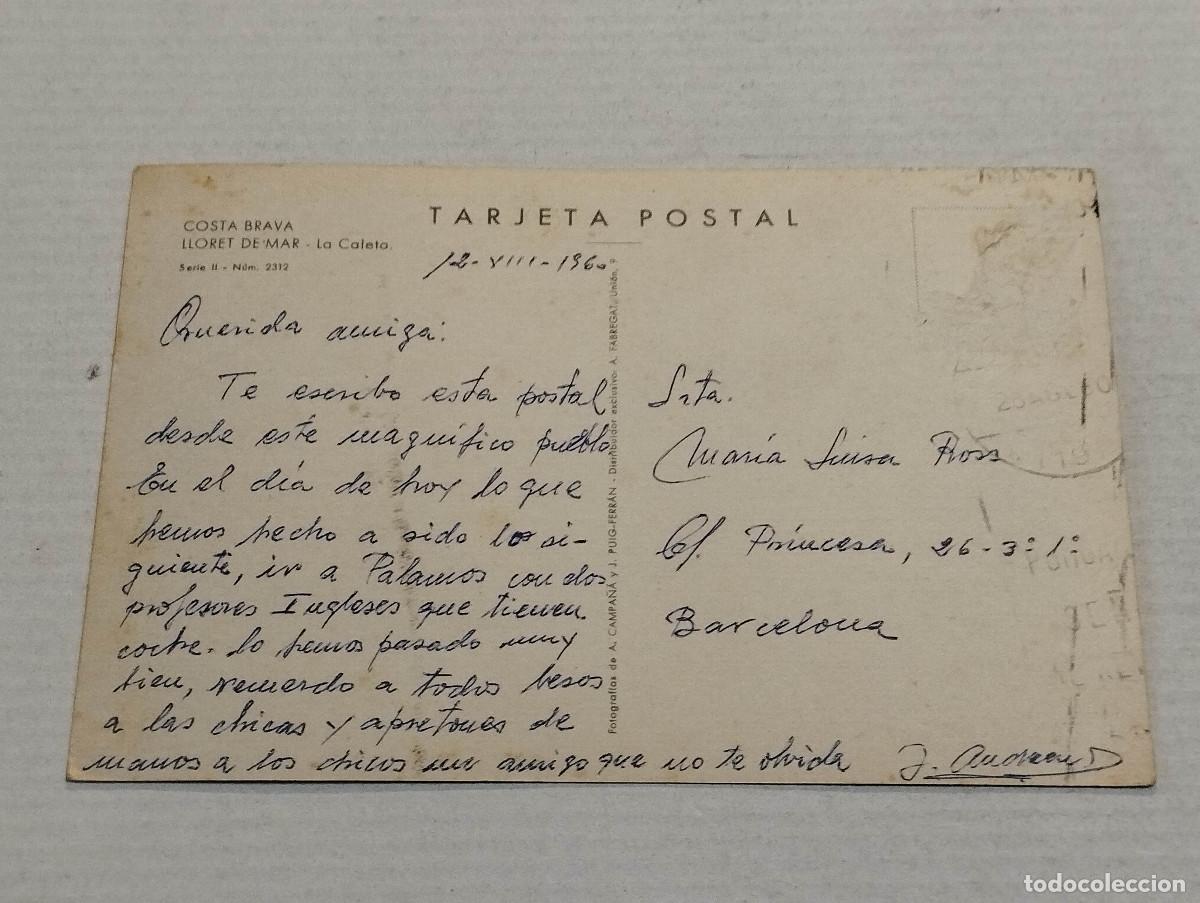 TARJETA POSTAL
COSTA BRAVA
LLORET DE MAR - La Caleta.
Serie II - Núm. 2312
12-VIII-1960
Querida amiga:
Te escribo esta postal
desde este magnífico pueblo
En el día de hoy lo que
hemos hecho a sido lo si-
guiente, ir a Palamos con dos
profesores Ingleses que tienen
coche. lo hemos pasado muy
bien, recuerdo a todos besos
a las chicas y apretones de
manos a los chicos un amigo que no te olvida
J. Andreu
Fotografías de A. CAMPAÑÁ y J. PUIG-FERRÁN - Distribuidor exclusivo: A. FABREGAT, Unión, 9
Srta.
María Luisa Ross
C/. Princesa, 26-3º 1º
Barcelona
todocoleccion